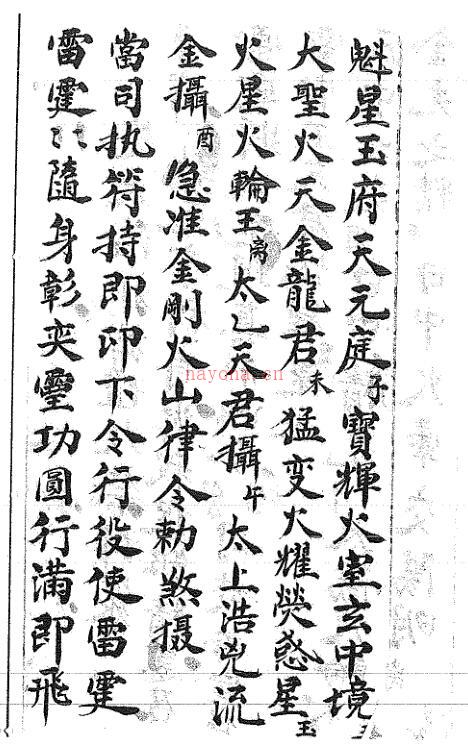 魁星玉府天元庭子寶輝火室玄中境
大聖火天金龍君未猛变火耀熒惑星玉
火星火輪王离太乙天君攝午太上浩兇流
金攝酉急准金剛火山律令勅煞摄
當司执符持即印下令行役使雷霆
雷霆〻隨身彰奕霻功圓行滿即飛
nayona.cn